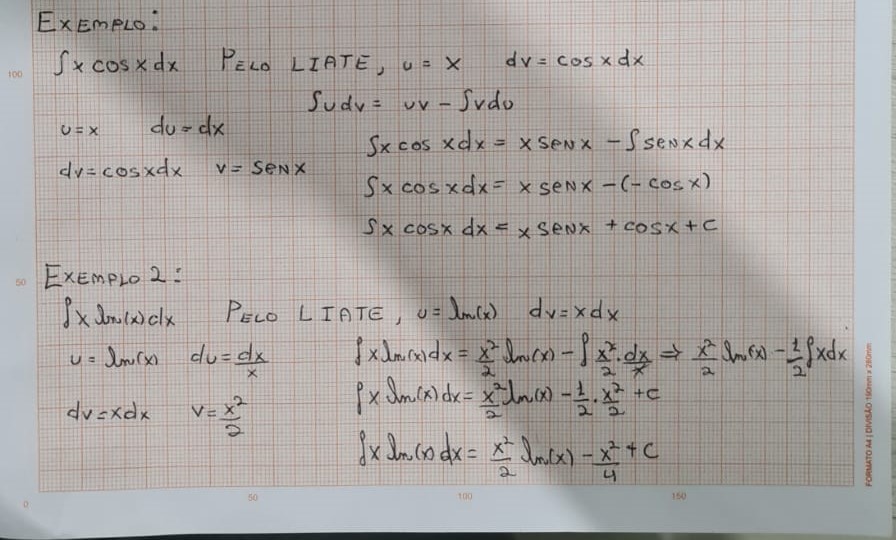 EXEMPLO:
∫x cos x dx PELO LIATE, u = x dv = cos x dx
∫udv = uv - ∫vdu
u = x du = dx
∫x cos x dx = x sen x - ∫sen x dx
dv = cos x dx v = sen x
∫x cos x dx = x sen x - (- cos x)
∫x cos x dx = x sen x + cos x + c
EXEMPLO 2:
∫x ln(x) dx PELO LIATE, u = ln(x) dv = x dx
u = ln(x) du = dx/x ∫x ln(x) dx = x²/2 ln(x) - ∫x²/2 . dx/x ⇒ x²/2 ln(x) - 1/2 ∫x dx
∫x ln(x) dx = x²/2 ln(x) - 1/2 . x²/2 + c
dv = x dx v = x²/2
∫x ln(x) dx = x²/2 ln(x) - x²/4 + C
100
50
0
50
100
150
FORMATO A4 | DIVISÃO 180mm x 280mm